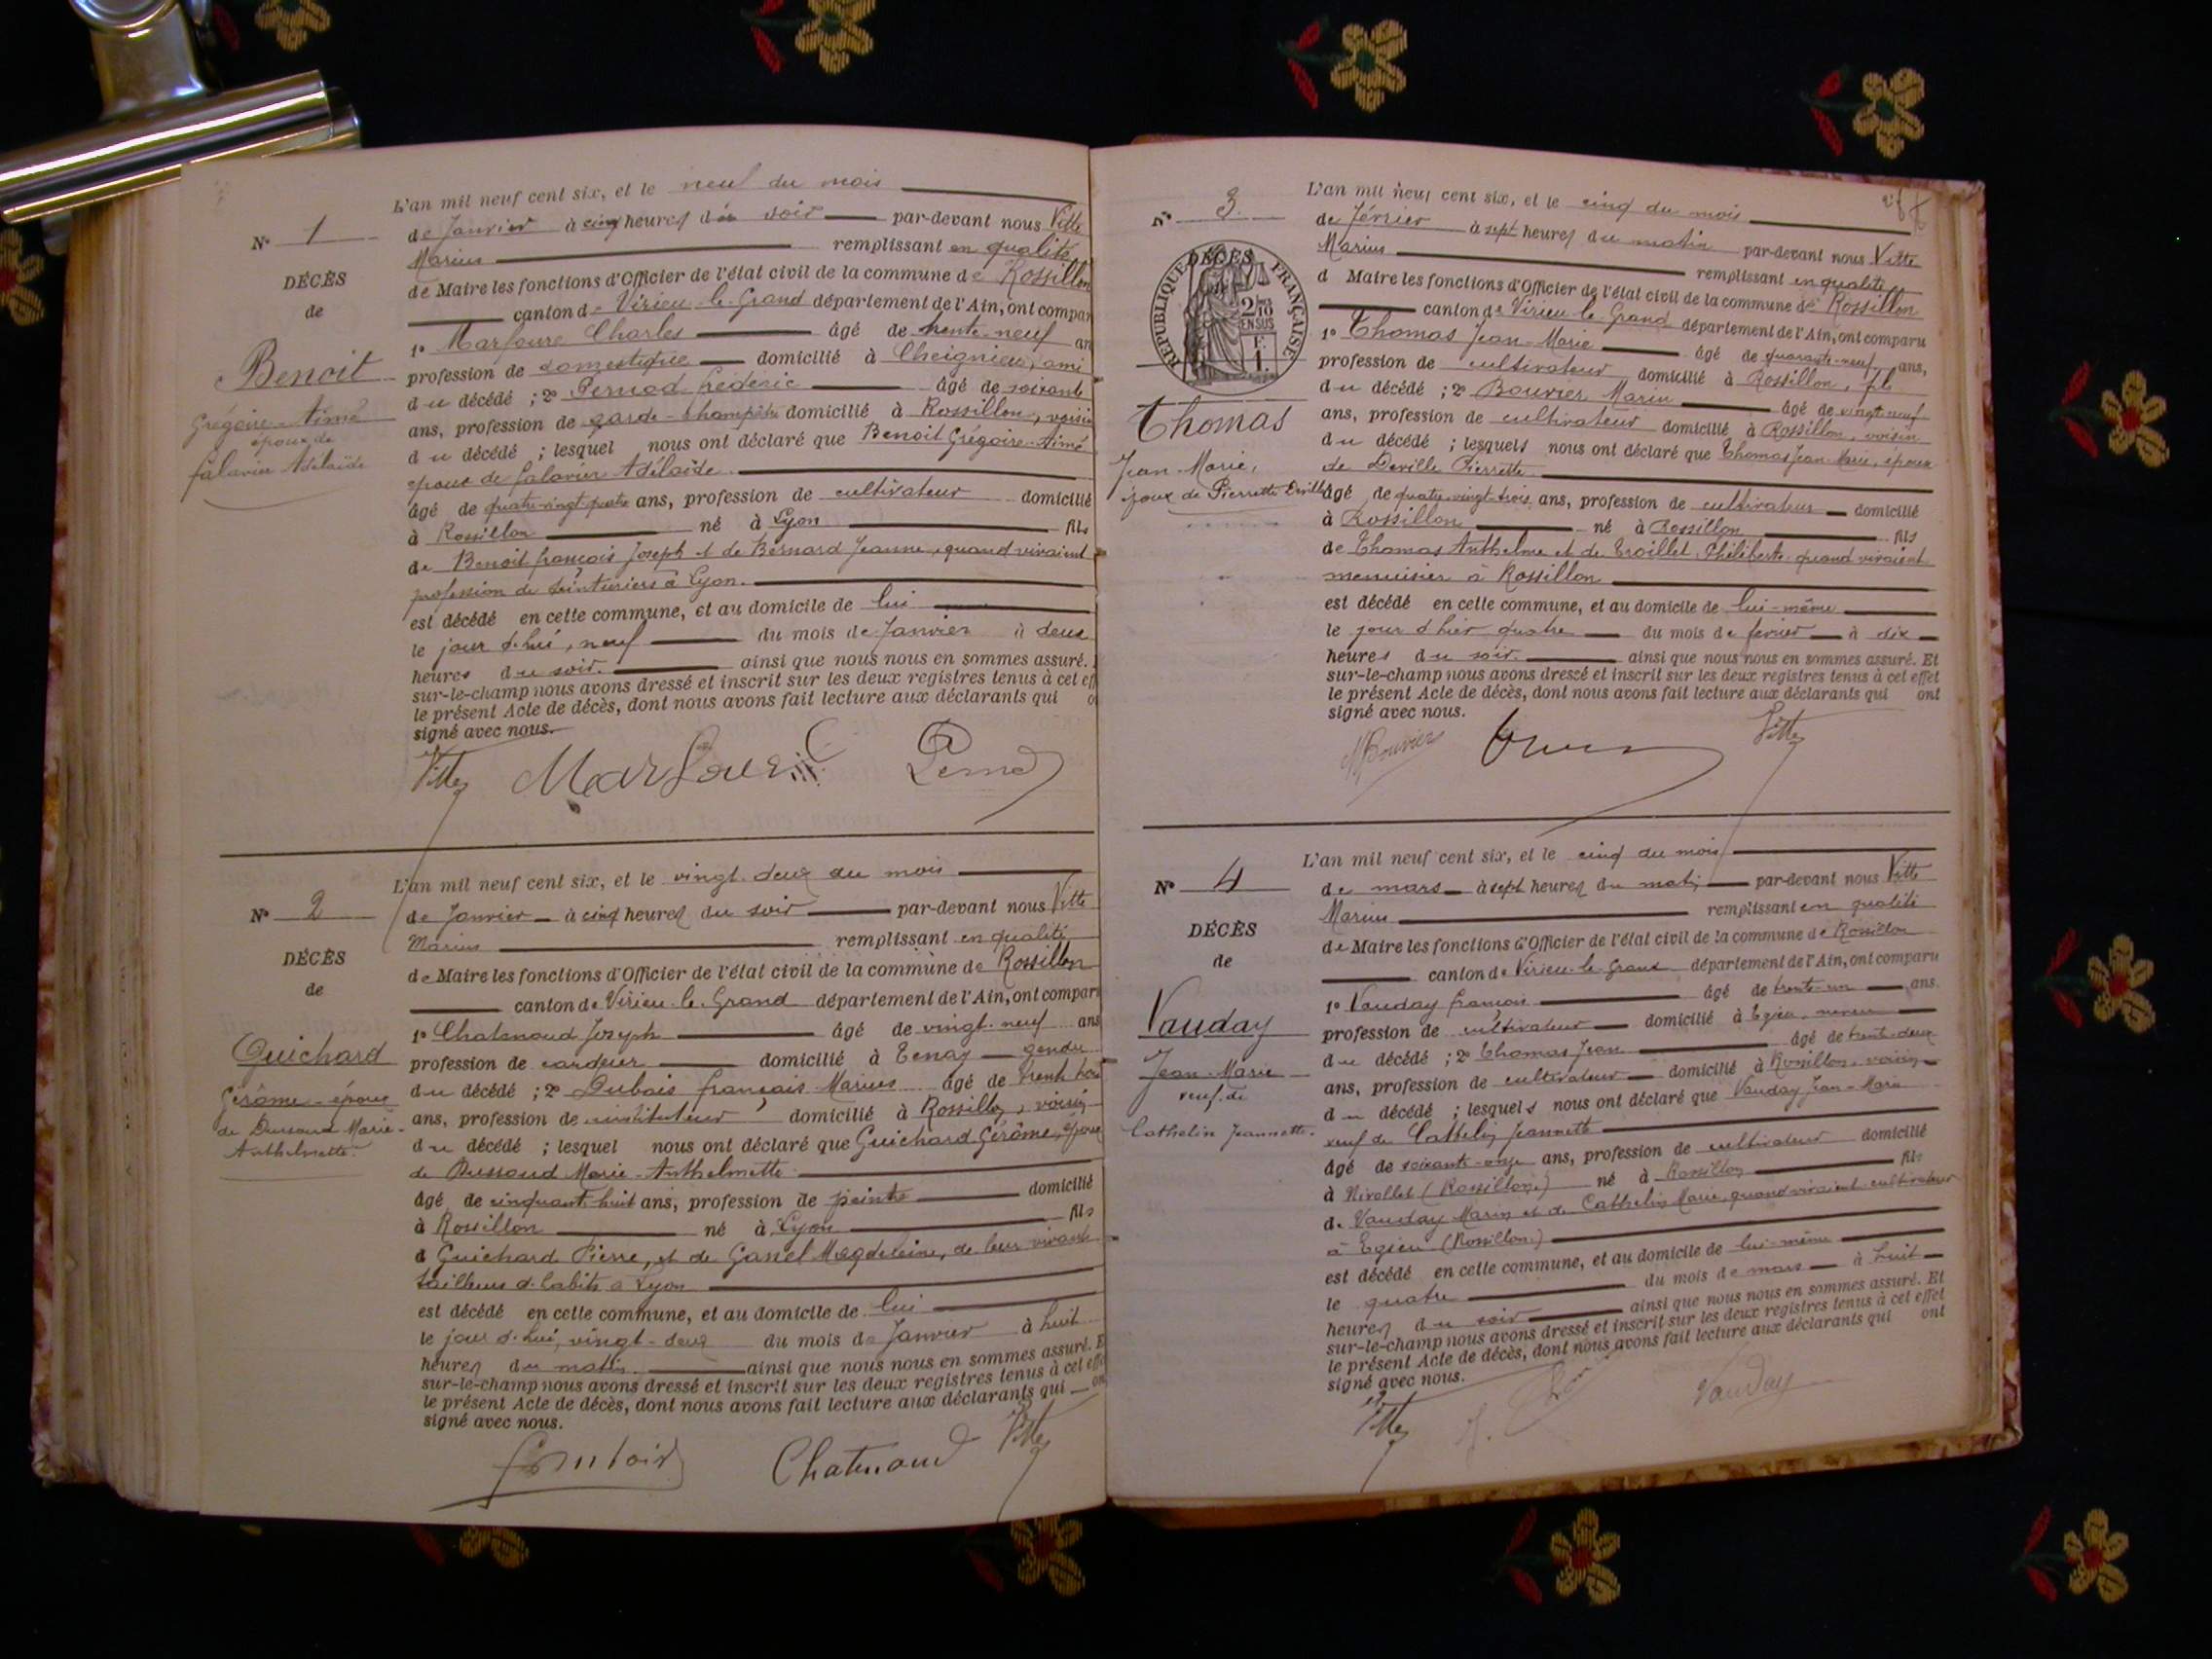 L'an mil neuf cent six, et le neuf du mois
N° 1
de Janvier à cinq heures du soir par-devant nous Vitte
Marius remplissant en qualité
DÉCÈS
de Maire les fonctions d'Officier de l'état civil de la commune de Rossillon
de
canton de Virieu-le-Grand département de l'Ain, ont compar
1° Charles âgé de trente-neuf an
Benoit
profession de domestique domicilié à Cheignieu, ami
du décédé ; 2° Pernod Frédéric âgé de soixante
Grégoire-Aimé
ans, profession de garde-champêtre domicilié à Rossillon, voisin
époux de
du décédé ; lesquel nous ont déclaré que Benoit Grégoire-Aimé
falavier Adélaïde
époux de falavier Adélaïde
âgé de quatre-vingt-quatre ans, profession de cultivateur domicilié
à Rossillon né à Lyon fils
de Benoit françois Joseph et de Bernard Jeanne, quand vivaient
profession de teinturiers à Lyon.
est décédé en cette commune, et au domicile de lui
le jour d'hui, neuf du mois de Janvier à deux
heures du soir. ainsi que nous nous en sommes assuré.
sur-le-champ nous avons dressé et inscrit sur les deux registres tenus à cet eff
le présent Acte de décès, dont nous avons fait lecture aux déclarants qui o
signé avec nous.
Vitte
L'an mil neuf cent six, et le vingt-deux du mois
N° 2
de Janvier à cinq heures du soir par-devant nous Vitte
Marius remplissant en qualité
DÉCÈS
de Maire les fonctions d'Officier de l'état civil de la commune de Rossillon
de
canton de Virieu-le-Grand département de l'Ain, ont compar
1° Chatenoud Joseph âgé de vingt-neuf ans
Guichard
profession de cardeur domicilié à Tenay gendre
Gérôme-époux
du décédé ; 2° Dubois françois-Marius âgé de
de Dussoud Marie-
ans, profession de instituteur domicilié à Rossillon, voisin
Anthelmette
du décédé ; lesquel nous ont déclaré que Guichard Gérôme, époux
de Dussoud Marie-Anthelmette
âgé de cinquante-huit ans, profession de peintre domicilié
à Rossillon né à Lyon fils
d Guichard Pierre, et de Ganel Magdeleine, de leur vivant
tailleurs d'habits à Lyon
est décédé en cette commune, et au domicile de lui
le jour d'hui, vingt-deux du mois de Janvier à huit
heures du matin. ainsi que nous nous en sommes assuré. E
sur-le-champ nous avons dressé et inscrit sur les deux registres tenus à cet effe
le présent Acte de décès, dont nous avons fait lecture aux déclarants qui on
signé avec nous.
Chatenoud Vitte
L'an mil neuf cent six, et le cinq du mois
N° 3
de Février à sept heures du matin par-devant nous Vitte
Marius remplissant en qualité
DÉCÈS
RÉPUBLIQUE FRANÇAISE
d Maire les fonctions d'Officier de l'état civil de la commune de Rossillon
canton de Virieu-le-Grand département de l'Ain, ont comparu
2/10 EN SUS
1° Thomas Jean-Marie âgé de quarante-neuf ans,
profession de cultivateur domicilié à Rossillon, fils
du décédé ; 2° Bouvier Marin âgé de vingt-neuf
Thomas
ans, profession de cultivateur domicilié à Rossillon, voisin
du décédé ; lesquels nous ont déclaré que Thomas Jean-Marie, époux
Jean-Marie,
de Deville Pierrette
époux de Pierrette Deville
âgé de quatre-vingt-trois ans, profession de cultivateur domicilié
à Rossillon né à Rossillon fils
de Thomas Anthelme et de Troillet Philiberte quand vivaient
menuisier à Rossillon
est décédé en cette commune, et au domicile de lui-même
le jour d'hier quatre du mois de fevrier à dix
heures du soir. ainsi que nous nous en sommes assuré. Et
sur-le-champ nous avons dressé et inscrit sur les deux registres tenus à cet effet
le présent Acte de décès, dont nous avons fait lecture aux déclarants qui ont
signé avec nous.
M Bouvier Vitte
L'an mil neuf cent six, et le cinq du mois
N° 4
de mars à sept heures du matin par-devant nous Vitte
Marius remplissant en qualité
DÉCÈS
de Maire les fonctions d'Officier de l'état civil de la commune de Rossillon
de
canton de Virieu-le-Grand département de l'Ain, ont comparu
1° Vauday françois âgé de trente-un ans
Vauday
profession de cultivateur domicilié à Egieu, neveu
du décédé ; 2° Thomas Jean âgé de trente-deux
Jean-Marie
ans, profession de cultivateur domicilié à Rossillon, voisin
veuf de
du décédé ; lesquels nous ont déclaré que Vauday Jean-Marie
Cathelin Jeannette
veuf de Cathelin Jeannette
âgé de soixante-onze ans, profession de cultivateur domicilié
à Nivollet (Rossillon) né à Rossillon fils
de Vauday Marin et de Cathelin Marie, quand vivaient cultivateurs
à Egieu (Rossillon)
est décédé en cette commune, et au domicile de lui-même
le quatre du mois de mars à huit
heures du soir ainsi que nous nous en sommes assuré. Et
sur-le-champ nous avons dressé et inscrit sur les deux registres tenus à cet effet
le présent Acte de décès, dont nous avons fait lecture aux déclarants qui ont
signé avec nous.
Vitte Vauday